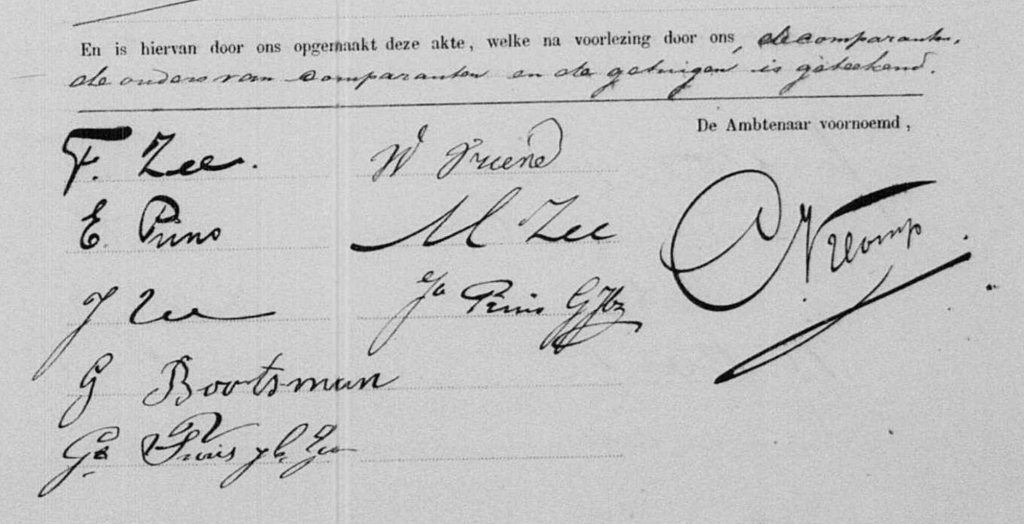 En is hiervan door ons opgemaakt deze akte, welke na voorlezing door ons, de comparanten,
de ouders van comparanten en de getuigen is geteekend.
De Ambtenaar voornoemd,
F. Zee. W Vriend
E. Prins M Zee
J Zee Ja Prins GJbz
G Bootsman